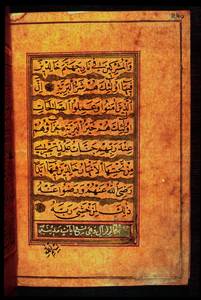 والمشركين في نار جهنم خالدين
فيها اولئك هم شر البرية ان
الذين امنوا وعملوا الصالحات
اولئك هم خير البرية جزاؤهم
عند ربهم جنات عدن تجري
من تحتها الانهار خالدين فيها ابدا
رضي الله عنهم ورضوا عنه
ذلك لمن خشي ربه
الزلزال وهي آيات مدنية